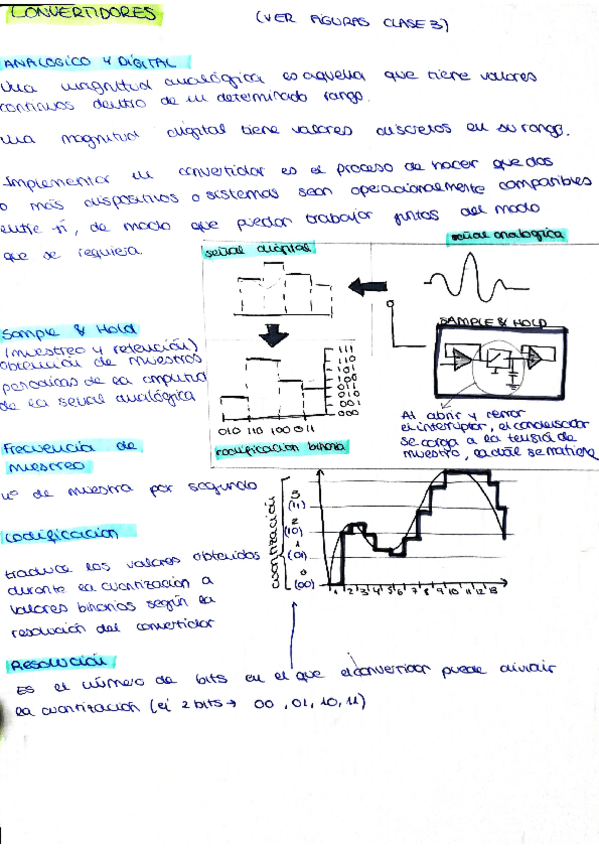 CONVERTIDORES
(VER FIGURAS CLASE 3)
ANALOGICO Y DIGITAL
Una magnitud analógica es aquella que tiene valores
continuos dentro de un determinado rango.
Una magnitud digital tiene valores discretos en su rango.
Implementar un convertidor es el proceso de hacer que dos
o más dispositivos o sistemas sean operacionalmente compatibles
entre sí, de modo que puedan trabajar juntos del modo
que se requiera.
señal digital
señal analogica
SAMPLE & HOLD
Sample & Hold
(muestreo y retención)
obtención de muestras
periodicas de la amplitud
de la señal analógica
111
110
101
100
011
010
001
000
010 110 100 011
codificacion binaria
Al abrir y cerrar
el interruptor, el condensador
se carga a la tensió de
muestro, la cual se mantiene
Frecuencia de
muestreo
nº de muestra por segundo
Codificación
traduce los valores obtenidos
durante la cuantización a
valores binarios según la
resolución del convertidor
cuantización
3
(11)
2
(10)
1
(01)
0
(00)
1 2 3 4 5 6 7 8 9 10 11 12 13
Resolución
Es el número de bits en el que el convertidor puede dividir
la cuantización (ej 2 bits → 00, 01, 10, 11)